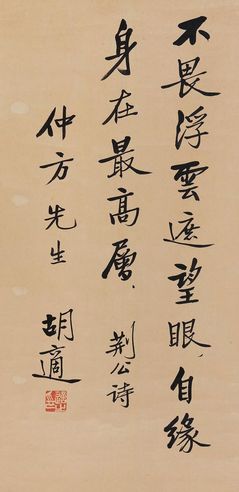 不畏浮雲遮望眼，自缘
身在最高層，荆公诗
仲方先生
胡適